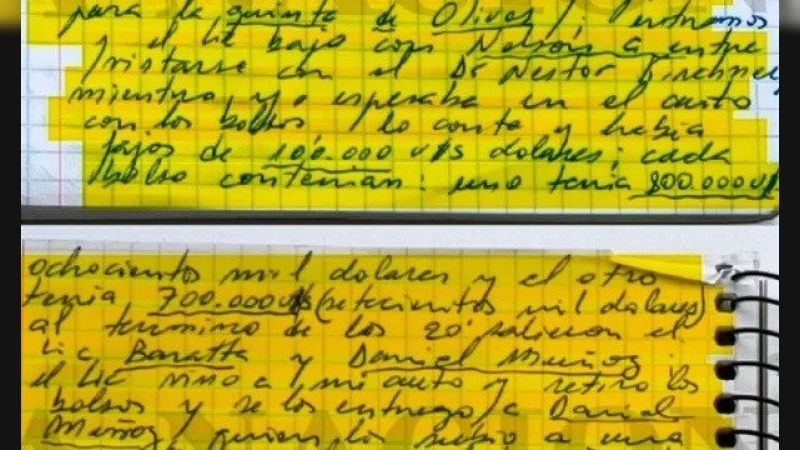 para la quinta de Olivos /; Entramos
y el Lic bajo con Nelson a entre
/vistarse con el Dr Nestor
mientra yo esperaba en el auto
con los bolsos / lo conte y había
fajos de 100.000 u/s dolares; cada
bolso contenian: uno tenia 800.000 u/s
ochocientos mil dolares y el otro
tenia 700.000 u/s (setecientos mil dolares)
al termino de los 20' salieron el
Lic Baratta y Daniel Muñoz
el Lic vino a mi auto y retiro los
bolsos y se los entrego /a Daniel
Muñoz / quien los subio a una